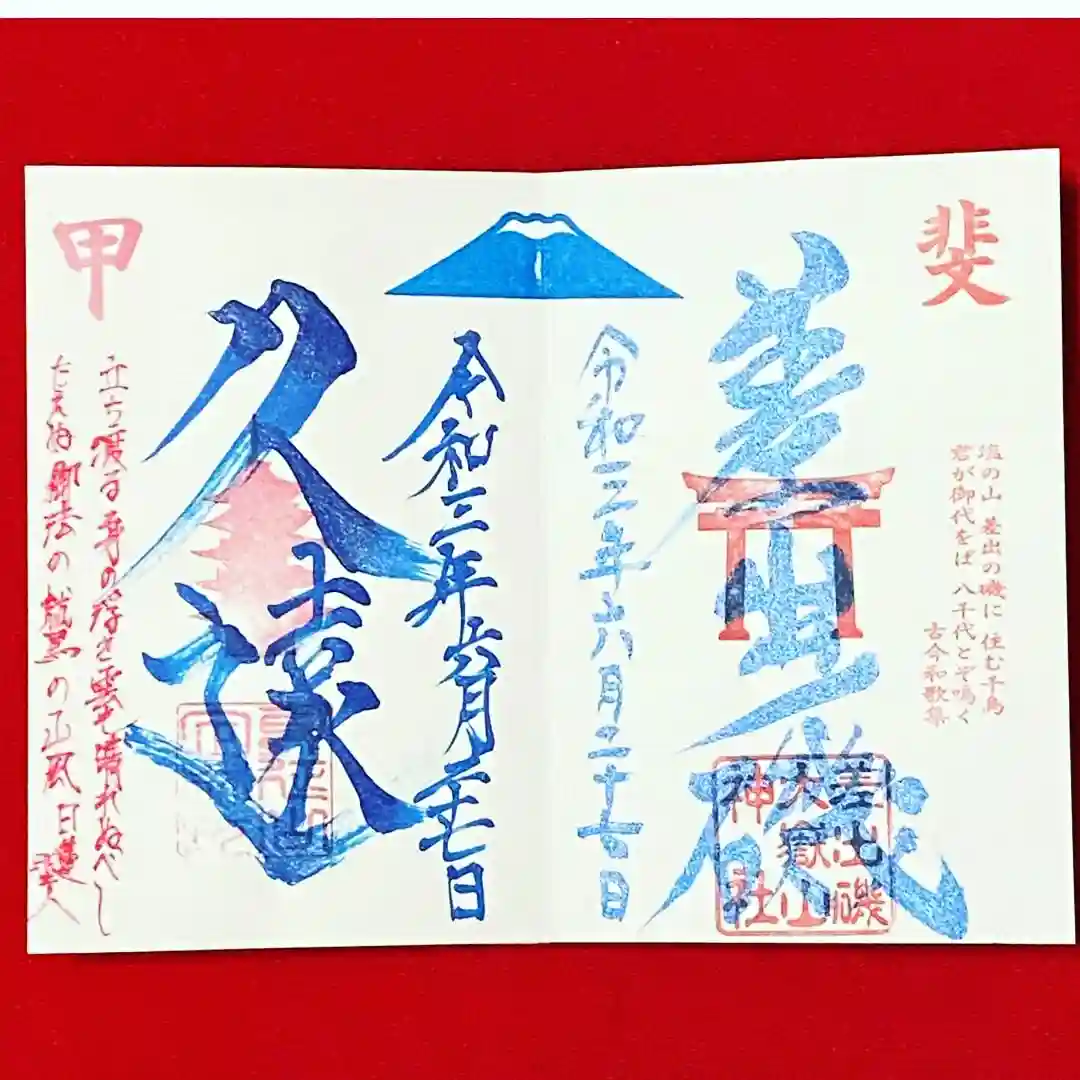 斐
塩の山 差出の磯に 住む千鳥
君が御代をば 八千代とぞ鳴く
古今和歌集
差出磯
差出磯
大嶽山
神社
令和三年六月二十七日
令和三年六月二十七日
久遠
甲
立ち渡る 身のうき雲も 晴れぬべし
たえぬ御法の 鷲の山風 日蓮